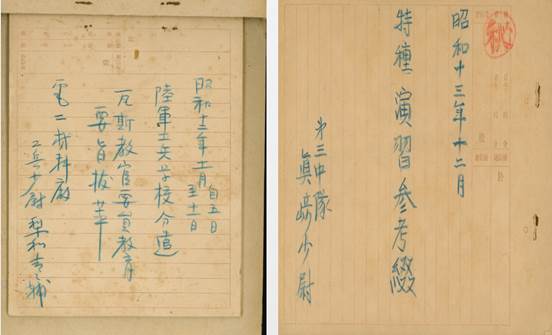 昭和十三年十一月 自五日
至十一日
陸軍工兵学校分遣
瓦斯教官要員教育
要旨抜萃
電二材料廠
工兵少尉
秘
昭和十三年十二月
特種演習参考綴
第三中隊
眞崎少尉